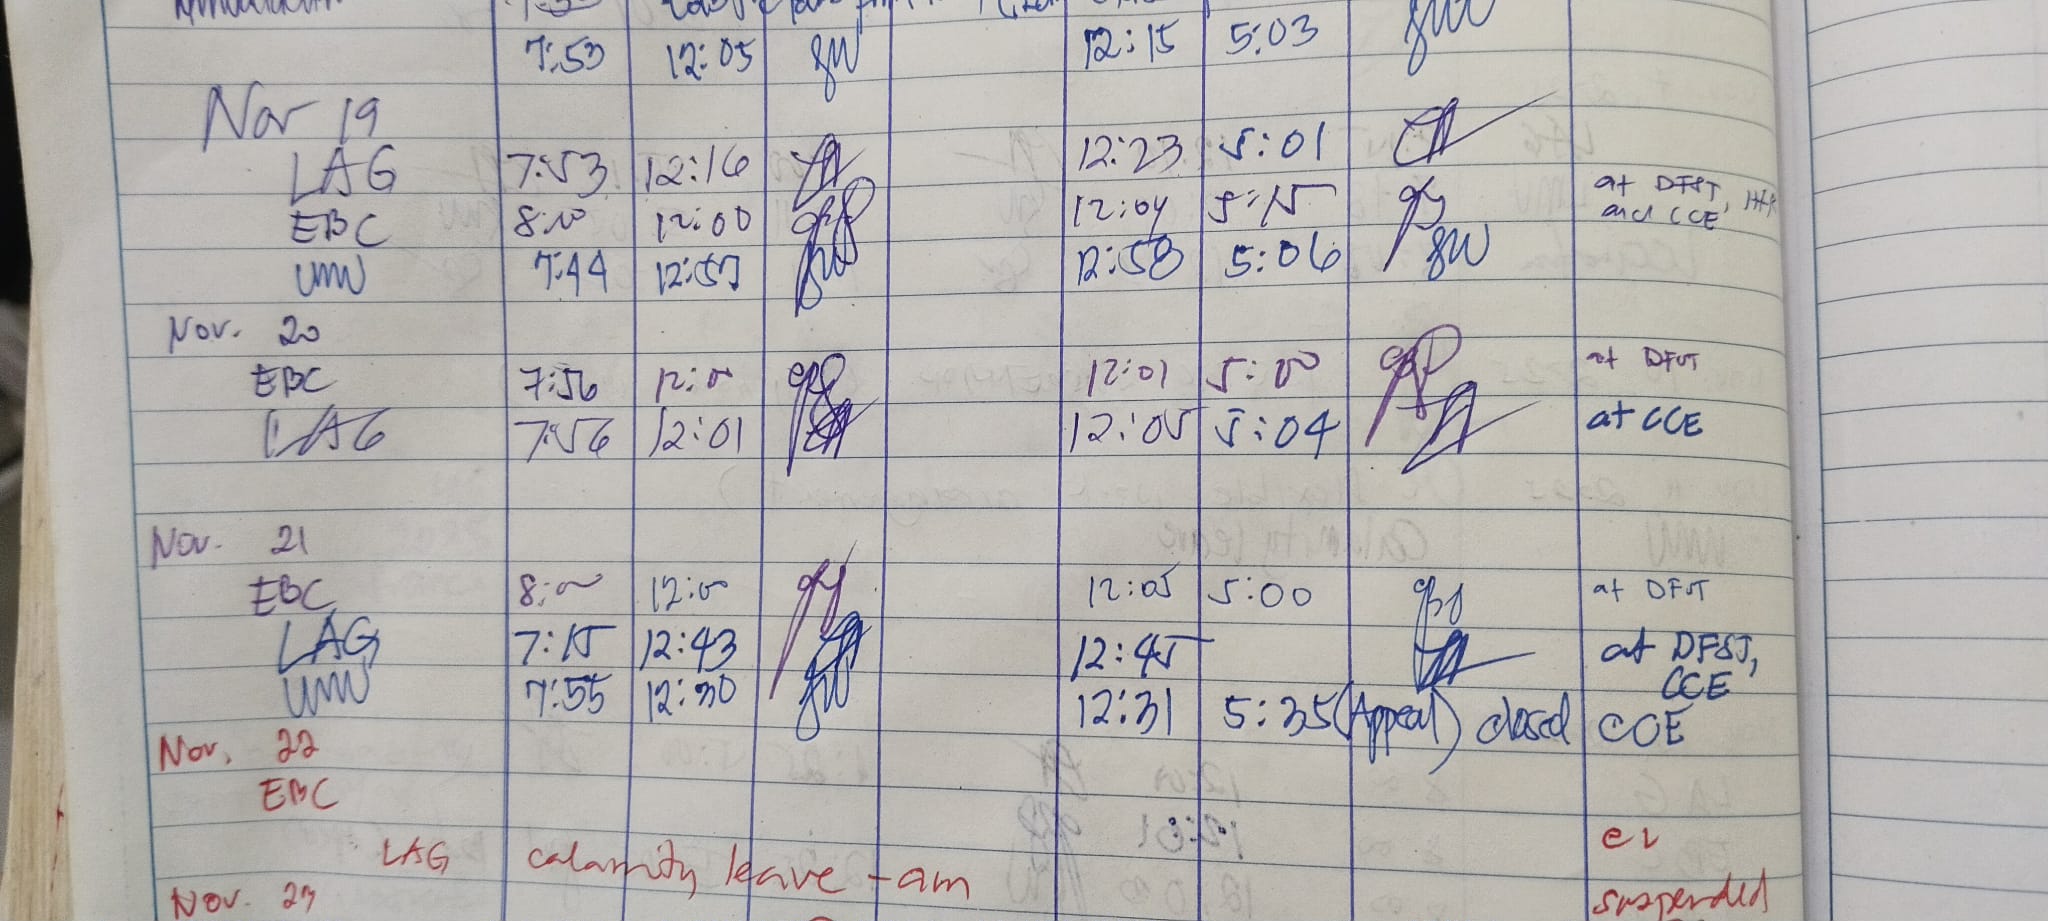 7:53 12:05 12:15 5:03
Nov 19
LAG 7:53 12:16 12:23 5:01
EBC 8:00 12:00 12:04 5:15 at DFST, and CCE
UMW 7:44 12:57 12:58 5:06
Nov. 20
EBC 7:56 12:00 12:01 5:00 at DFST
LAG 7:56 12:01 12:05 5:04 at CCE
Nov. 21
EBC 8:00 12:00 12:05 5:00 at DFST
LAG 7:15 12:43 12:45 at DFST, CCE
UMW 7:55 12:30 12:31 5:35 (Appeal) closed CCE
Nov. 22
EBC
LAG calamity leave - am
Nov. suspended